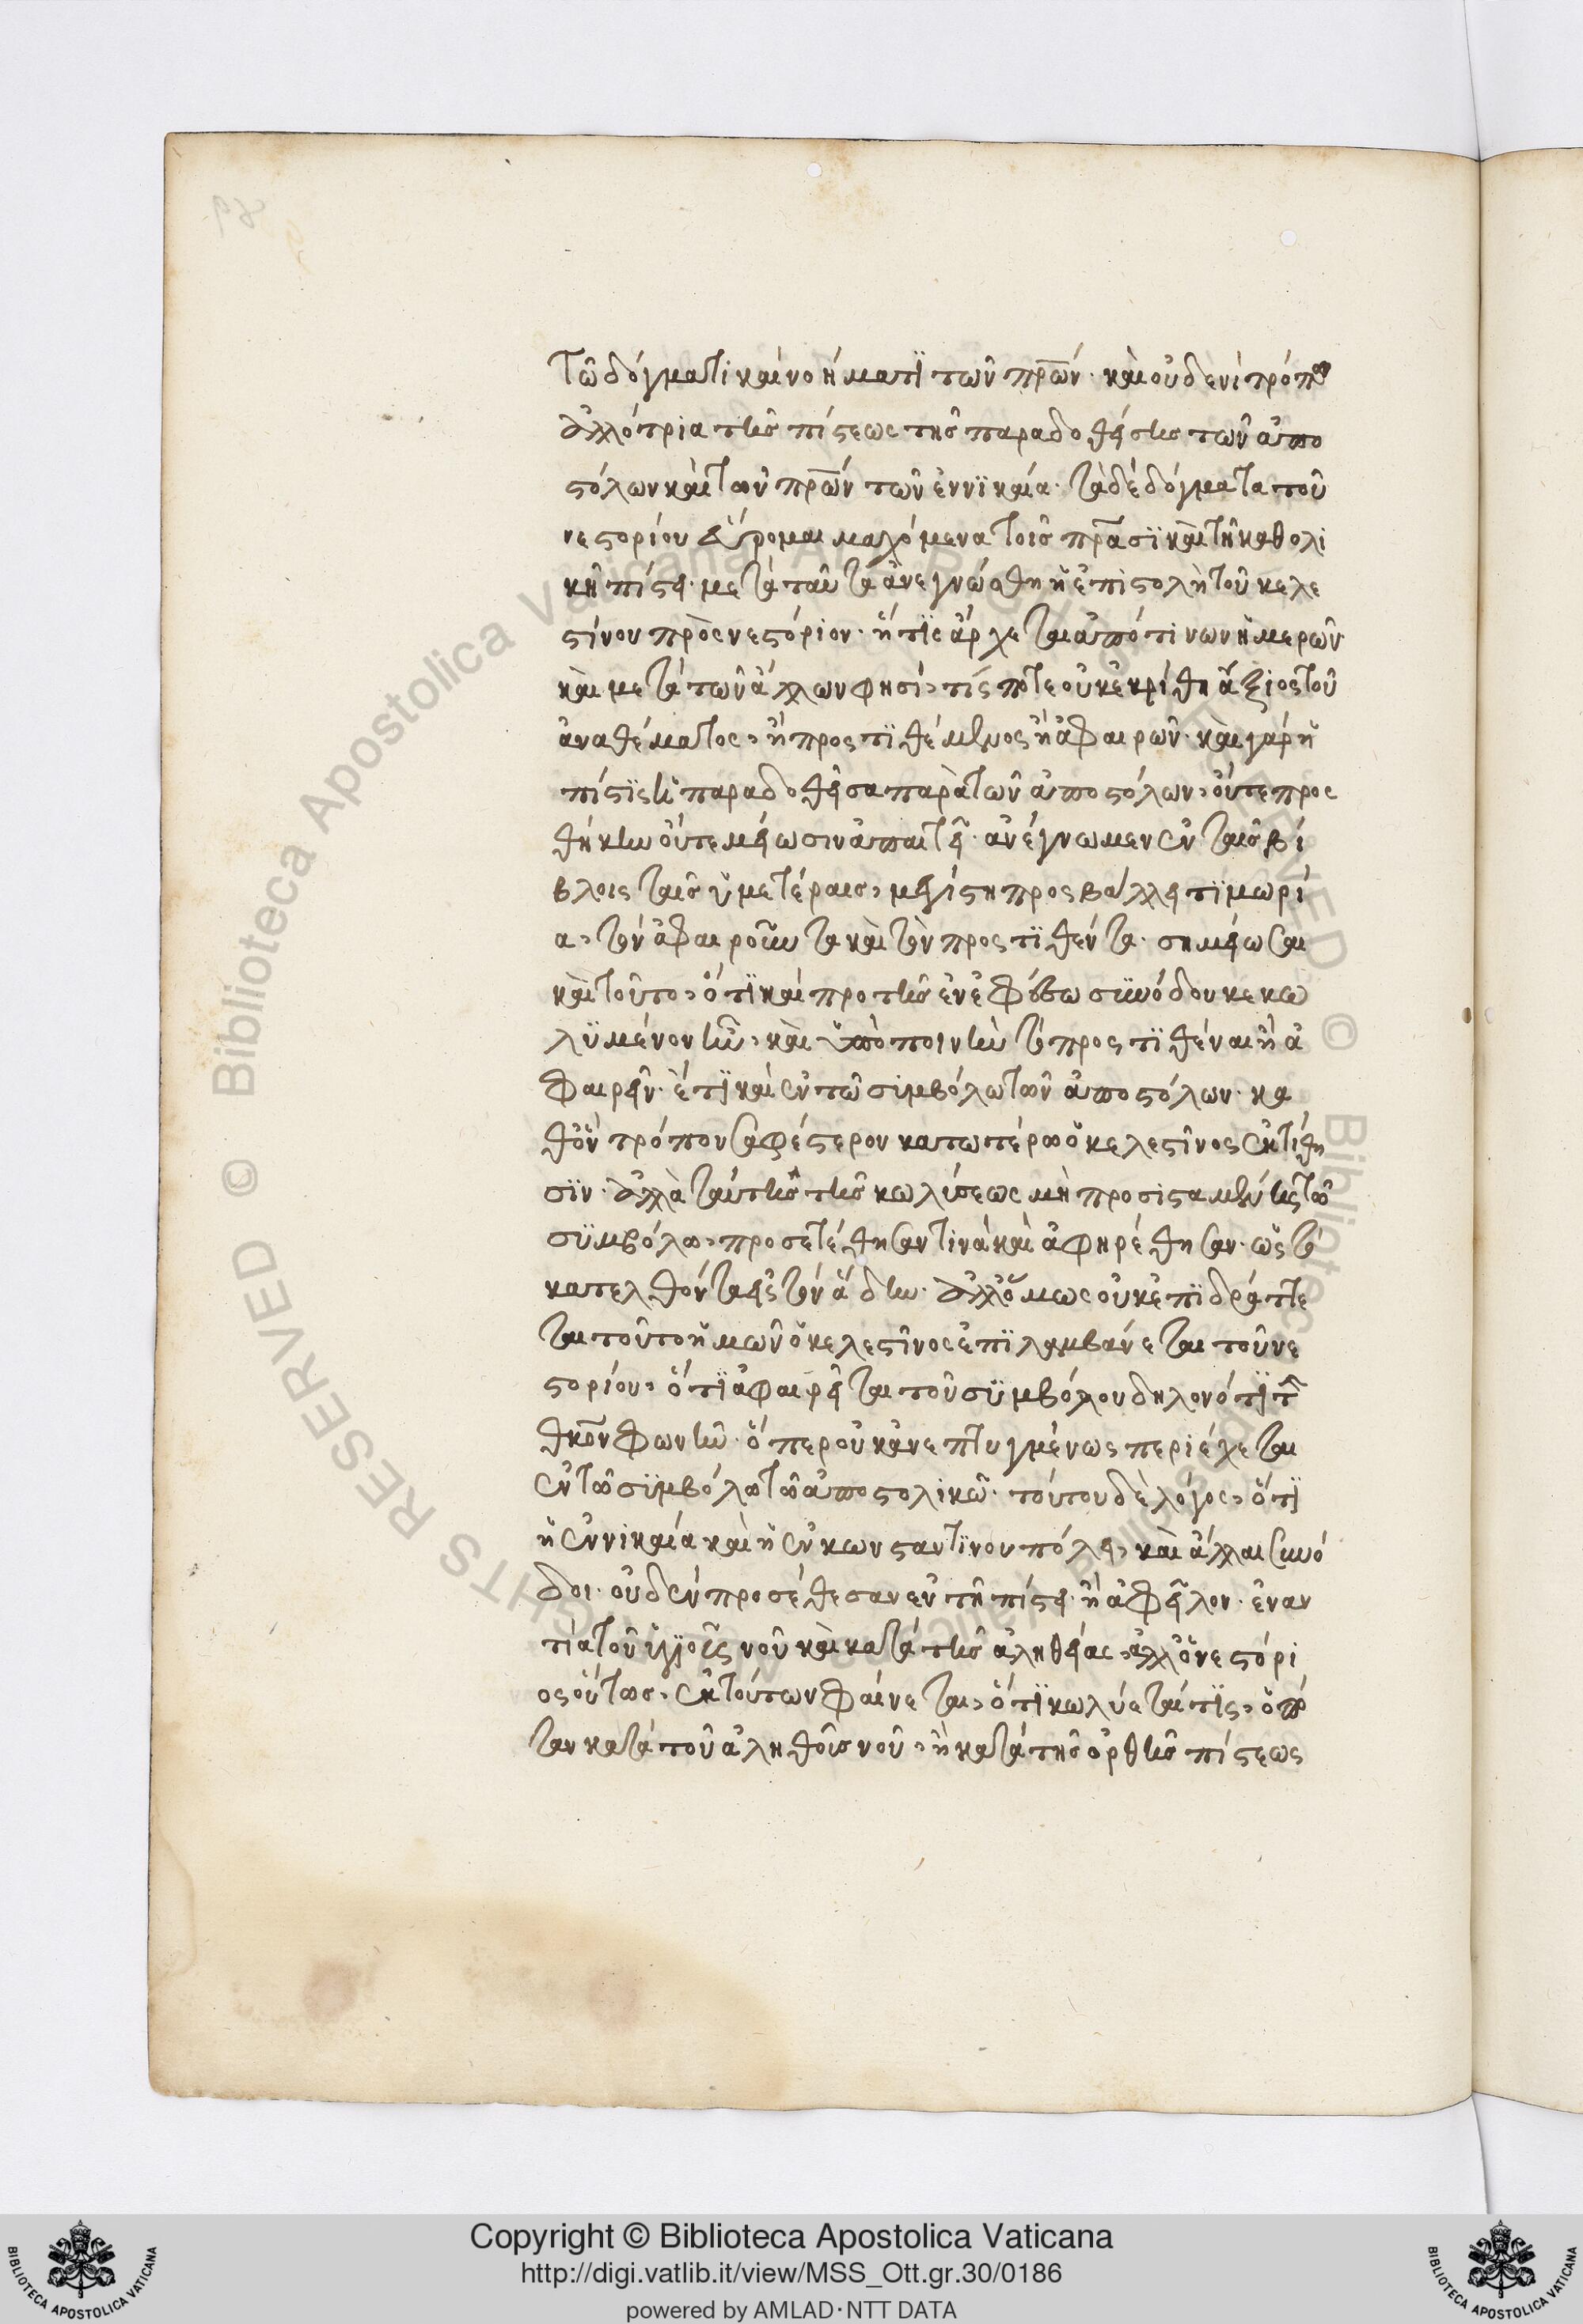 Τῶ δόγματι καὶ νοήματϊ τῶν πρῶν· καὶ οὐδενὶ τρόπω
ἀλλότρια τῆς πίστεως τῆς παραδοθείσης τῶν ἀπο
στόλων καὶ τῶν πρῶν τῶν ἐν νϊκαία· τὰ δὲ δόγματα τοῦ
νεστορίου εὕρομαι μαχόμενα τοῖς πρᾶσϊ καὶ τῆ καθολι
κῆ πίστει· μετὰ ταῦτα ἀνεγνώσθη ἡ ἐπιστολὴ τοῦ κελε
στίνου πρὸς νεστόριον· ἥτϊς ἄρχεται ἀπό τινων ἡμερῶν·
καὶ μετὰ τῶν ἄλλων φησί, τίς ποτε οὐκ ἐκρίθη ἄξιος τοῦ
ἀναθέματος, ἢ προστϊθέμενος ἢ ἀφαιρῶν· καὶ γὰρ ἡ
πίστϊς ἡ παραδοθεῖσα παρὰ τῶν ἀποστόλων, οὔτε προς
θήκην οὔτε μείωσιν ἀπαιτεῖ· ἀνέγνωμεν ἐν ταῖς βί
βλοις ταῖς ὑμετέραις, μεγίστη προσβάλλει τϊμωρί
α, τὸν ἀφαιροῦντα καὶ τὸν προστϊθέντα· σημείωσαι
καὶ τοῦτο, ὅτϊ καὶ πρὸ τῆς ἐν ἐφέσω σϋνόδου κεκω
λϋμένον ἦν, καὶ ὑπὸ ποινὴν τὸ προστϊθέναι ἢ ἀ
φαιρεῖν· ἔτϊ καὶ ἐν τῶ σιμβόλω τῶν ἀποστόλων· κα
θ' ὃν τρόπον σαφέστερον κατωτέρω ὁ κελεστῖνος ἐκτίθη
σϊν· ἀλλὰ ταύτης τῆς κωλύσεως μὴ προσισταμένης τῶ
σϋμβόλω, προσετέθησάν τινα καὶ ἀφηρέθησαν· ὡς τὸ
κατελθόντα εἰς τὸν ἅδην· ἀλλ' ὅμως οὐκ ἐπϊδράττε
ται τοῦτο ἡμῶν ὁ κελεστῖνος ἐπϊλαμβάνεται τοῦ νε
στορίου, ὅτϊ ἀφαιρεῖται τοῦ σϋμβόλου δηλονότϊ τὴν
θκον φωνήν· ὅπερ οὐκ ἀνεπτυγμένως περιέχεται
ἐν τῶ σϋμβόλω τῶ ἀποστολικῶ· τούτου δὲ λόγος, ὅτϊ
ἡ ἐν νικαία καὶ ἡ ἐν κωνσταντϊνουπόλει, καὶ ἄλλαι συνό
δοι· οὐδὲν προσέθεσαν ἐν τῆ πίστει· ἢ ἀφεῖλον· ἐναν
τία τοῦ ὑγϊοῦς νοῦ καὶ κατὰ τῆς ἀληθείας, ἀλλ' ὁ νεστόρι
ος οὕτως, ἐκ τούτων φαίνεται, ὅτϊ κωλύεταί τϊς, ὁπό
ταν κατὰ τοῦ ἀληθοῦς νοῦ, ἢ κατὰ τῆς ὀρθῆς πίστεως
Copyright © Biblioteca Apostolica Vaticana
http://digi.vatlib.it/view/MSS_Ott.gr.30/0186
powered by AMLAD·NTT DATA